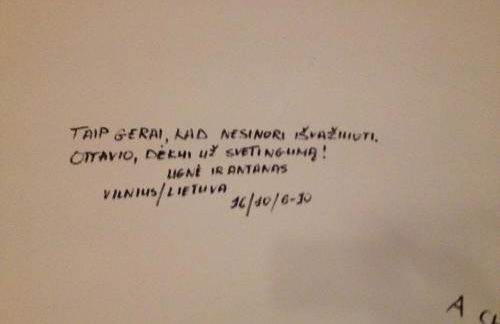 TAIP GERAI, KAD NESINORI IŠVAŽIUOTI.
OTTAVIO, DĖKUI UŽ SVETINGUMĄ!
UGNĖ IR ANTANAS
VILNIUS/LIETUVA
16/10/6-10
A